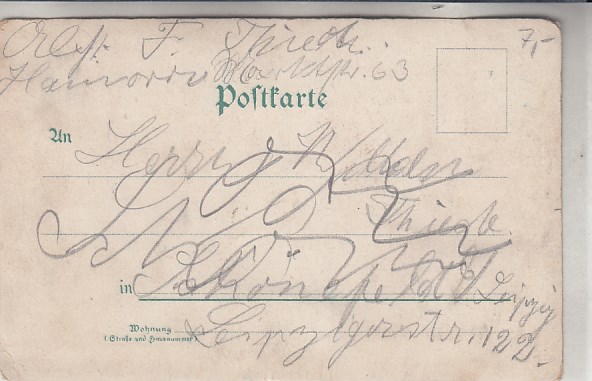 Abs. F. Thiede. 7,-
Hannover Marktstr. 63
Postkarte
An Herrn
Thiede
in Schönefeld b/ Leipzig
Wohnung Leipzigerstr. 122.
(Straße und Hausnummer)